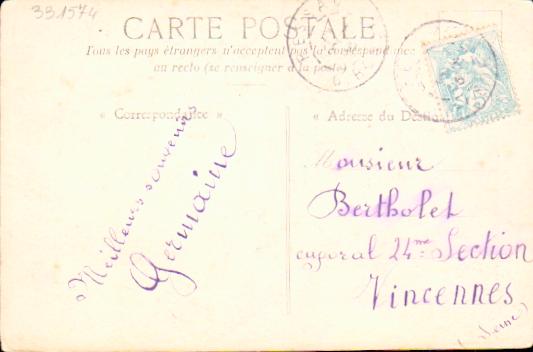 33.1574
CARTE POSTALE
Tous les pays étrangers n'acceptent pas la correspondance
au recto (se renseigner à la poste)
« Correspondance »
« Adresse du Destin
Meilleurs souvenirs
Germaine
Monsieur
Bertholet
caporal 24me Section
Vincennes
(Seine)